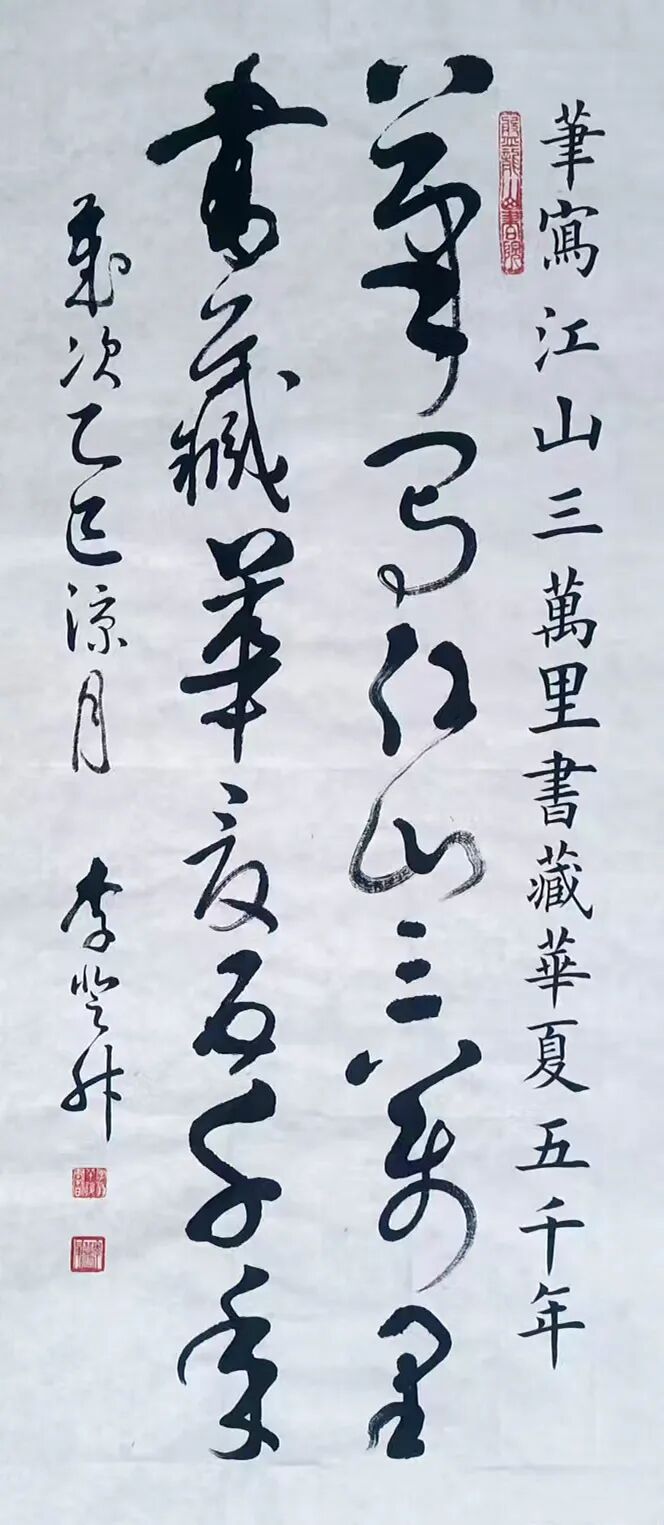 筆寫江山三萬里書藏華夏五千年
盤龍山書院
筆写江山三萬里
書藏華夏五千年
歲次乙巳涼月 李登